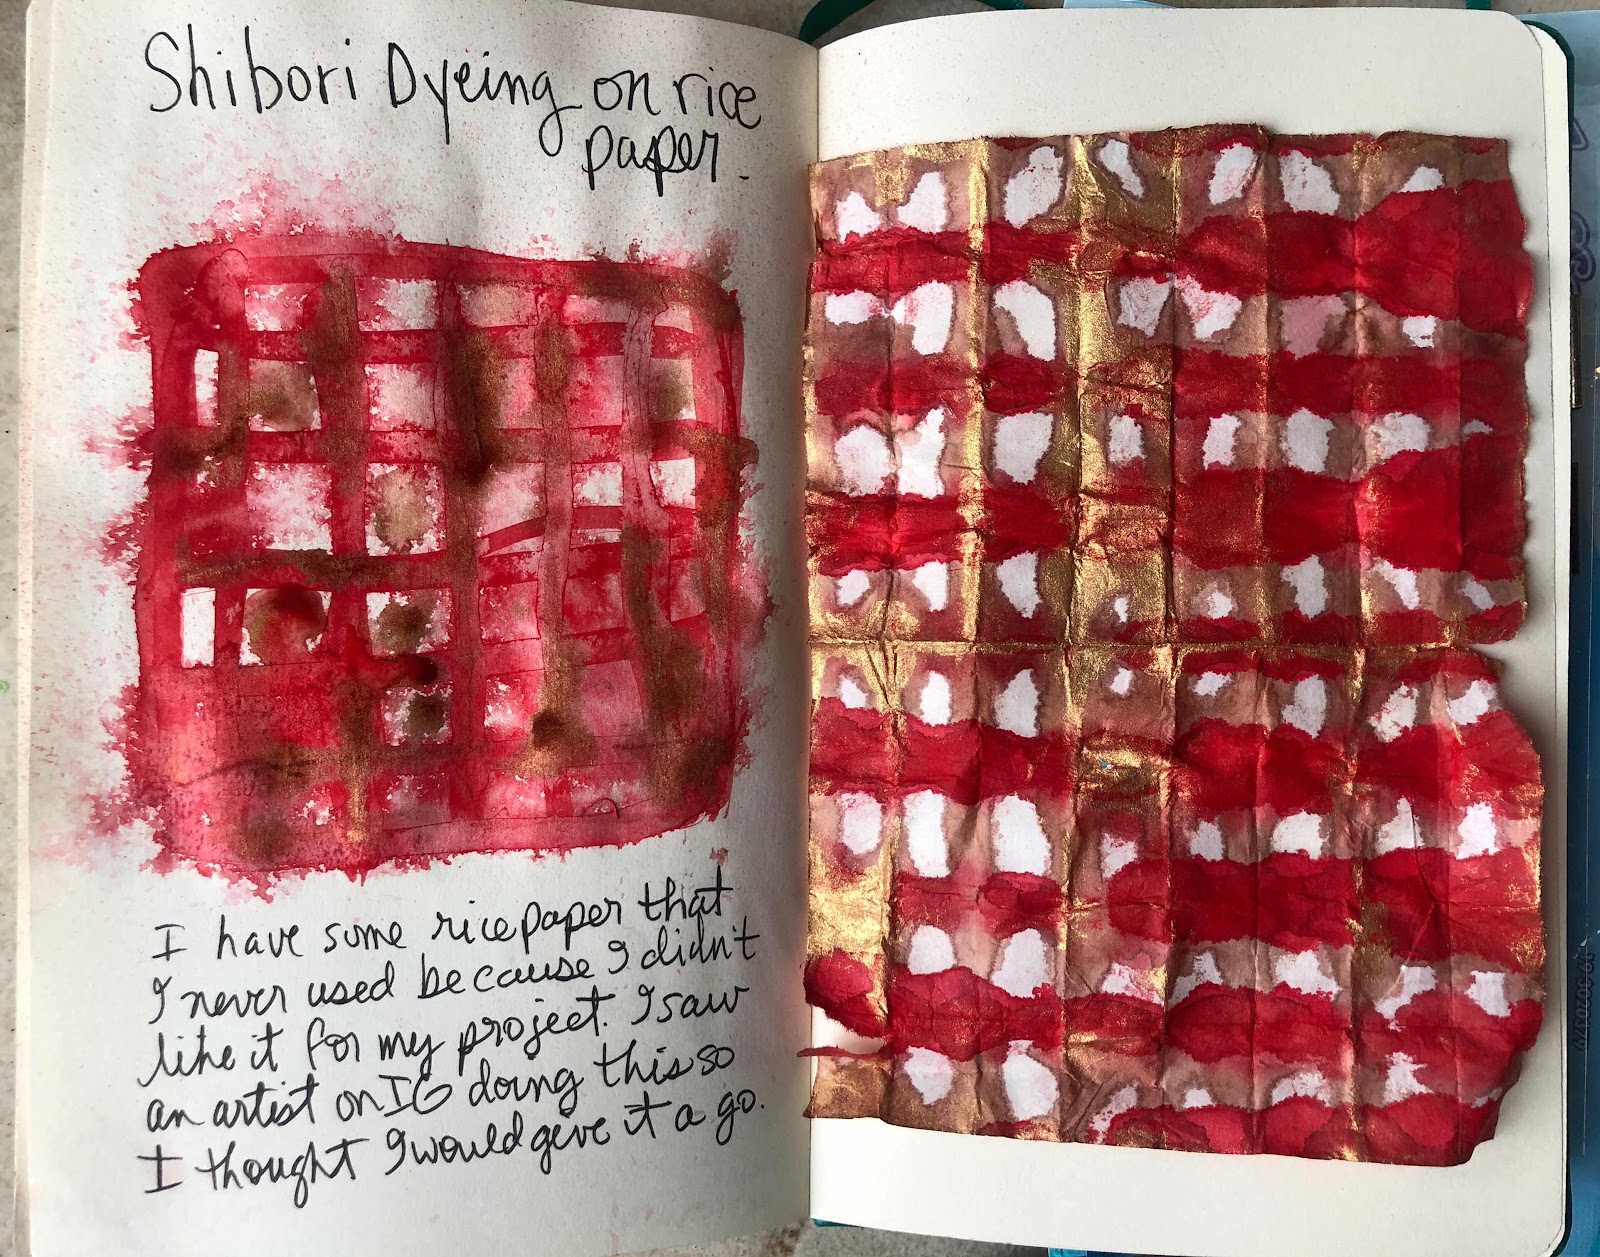 Shibori Dyeing on rice
paper.
I have some rice paper that
I never used because I didn't
like it for my project. I saw
an artist on IG doing this so
I thought I would geve it a go.